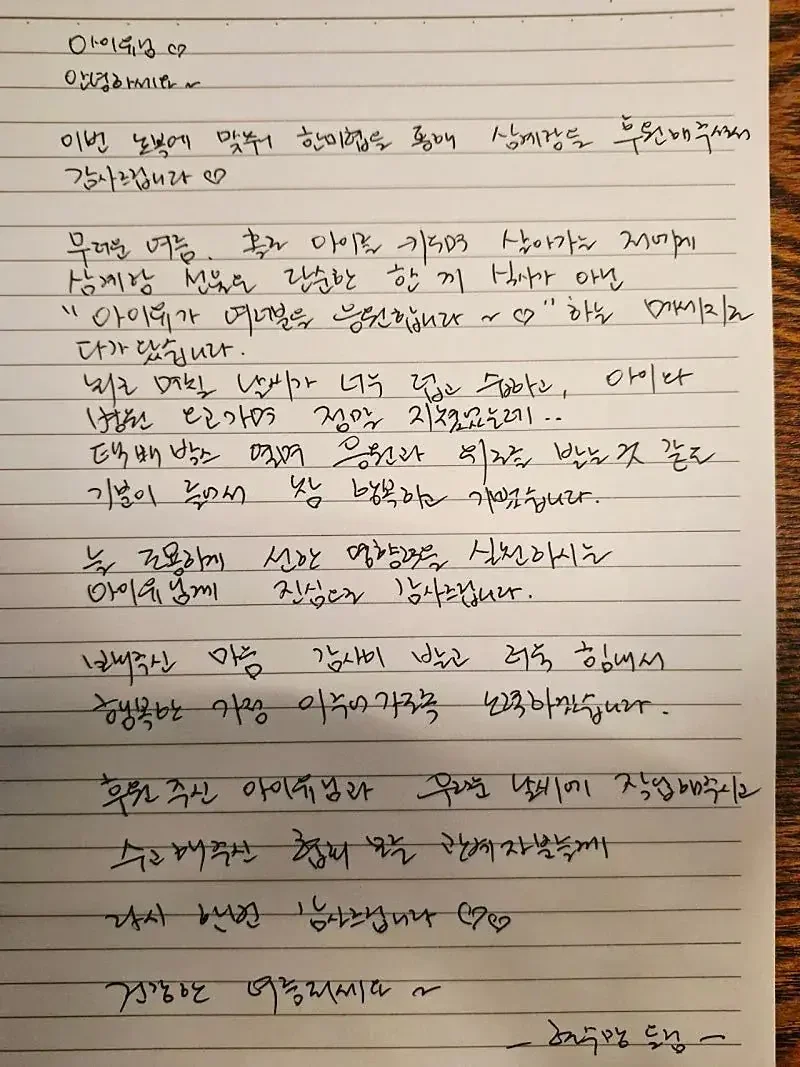 아이유님 ♡
안녕하세요~
이번 초복에 맞춰 한미협을 통해 삼계탕을 후원해주셔서
감사드립니다 ♡
무더운 여름. 홀로 아이를 키우며 살아가는 저에게
삼계탕 선물은 단순한 한 끼 식사가 아닌
"아이유가 여러분을 응원합니다~♡" 하는 메세지로
다가 왔습니다.
최근 며칠 날씨가 너무 덥고 습하고, 아이와
병원 오고가며 정말 지쳤었는데..
택배 박스 열며 응원과 위로를 받는 것 같은
기분이 들어서 참 행복하고 기뻤습니다.
늘 조용하게 선한 영향력을 실천하시는
아이유님께 진심으로 감사드립니다.
보내주신 마음 감사히 받고 더욱 힘내서
행복한 가정 이루어가도록 노력하겠습니다.
후원 주신 아이유님과 무더운 날씨에 작업해주시고
수고해주신 협회 모든 관계자분들께
다시 한번 감사드립니다 ♡♡
건강한 여름되세요~